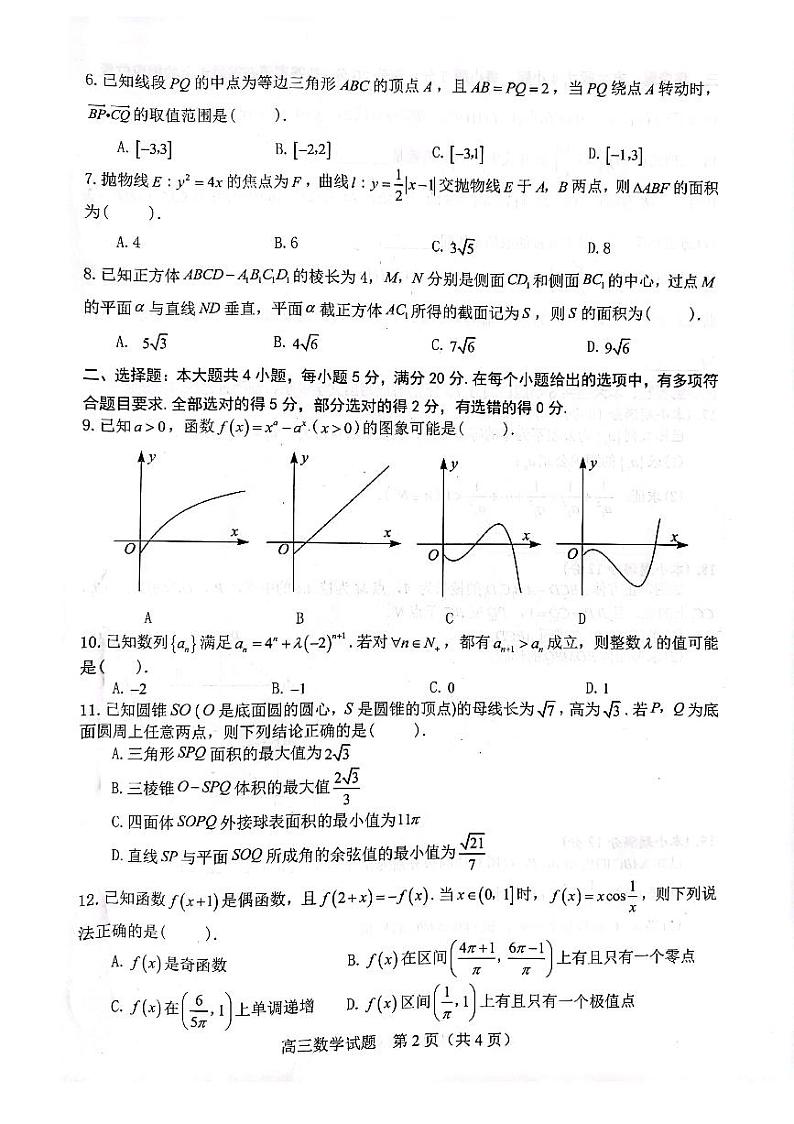 6. 已知线段 PQ 的中点为等边三角形 ABC 的顶点 A，且 AB = PQ = 2，当 PQ 绕点 A 转动时，
$\overrightarrow{BP}\bullet\overrightarrow{CQ}$ 的取值范围是(    ).
A. [−3,3]    B. [−2,2]    C. [−3,1]    D. [−1,3]
7. 抛物线 E : y² = 4x 的焦点为 F，曲线 l : y = $\frac{1}{2}$|x−1| 交抛物线 E 于 A，B 两点，则 △ABF 的面积
为(    ).
A. 4    B. 6    C. 3√5    D. 8
8. 已知正方体 ABCD − A₁B₁C₁D₁ 的棱长为 4，M，N 分别是侧面 CD₁ 和侧面 BC₁ 的中心，过点 M
的平面 α 与直线 ND 垂直，平面 α 截正方体 AC₁ 所得的截面记为 S，则 S 的面积为(    ).
A. 5√3    B. 4√6    C. 7√6    D. 9√6
二、选择题：本大题共 4 小题，每小题 5 分，满分 20 分. 在每个小题给出的选项中，有多项符
合题目要求. 全部选对的得 5 分，部分选对的得 2 分，有选错的得 0 分.
9. 已知 a > 0，函数 f(x) = xᵃ − aˣ (x > 0) 的图象可能是(    ).
y    y    y    y
O    x    O    x    O    x    O    x
A    B    C    D
10. 已知数列 {aₙ} 满足 aₙ = 4ⁿ + λ(−2)ⁿ⁺¹. 若对 ∀n ∈ N₊，都有 aₙ₊₁ > aₙ 成立，则整数 λ 的值可能
是(    ).
A. −2    B. −1    C. 0    D. 1
11. 已知圆锥 SO (O 是底面圆的圆心，S 是圆锥的顶点)的母线长为 √7，高为 √3. 若 P，Q 为底
面圆周上任意两点，则下列结论正确的是(    ).
A. 三角形 SPQ 面积的最大值为 2√3
B. 三棱锥 O − SPQ 体积的最大值 $\frac{2\sqrt{3}}{3}$
C. 四面体 SOPQ 外接球表面积的最小值为 11π
D. 直线 SP 与平面 SOQ 所成角的余弦值的最小值为 $\frac{\sqrt{21}}{7}$
12. 已知函数 f(x+1) 是偶函数，且 f(2+x) = −f(x). 当 x ∈ (0, 1] 时，f(x) = x cos $\frac{1}{x}$，则下列说
法正确的是(    ).
A. f(x) 是奇函数    B. f(x) 在区间 $\left(\frac{4\pi+1}{\pi}, \frac{6\pi-1}{\pi}\right)$ 上有且只有一个零点
C. f(x) 在 $\left(\frac{6}{5\pi}, 1\right)$ 上单调递增    D. f(x) 区间 $\left(\frac{1}{\pi}, 1\right)$ 上有且只有一个极值点
高三数学试题    第 2 页（共 4 页）